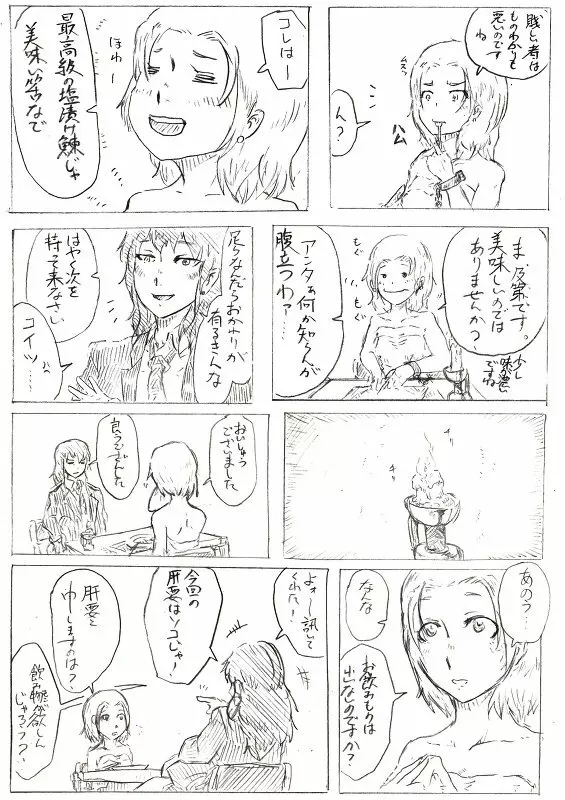 賤しい者は
ものわかりも
悪いのです
ね
ムスッ
ん?
コレはー
ほわー
最高級の塩漬け鰊じゃ
美味い筈なで
ま、及第です。
美味しいのでは
ありませんか?
少し
味が濃い
ですね
もぐ
もぐ
アンタぁ何か知らんが
腹立つわァ…
足りなんだらおかわりが
有るきんな
はやく次を
持って来なさい
コイツ…
チリ
おいしゅう
ございました
良うござんした
あのう…
なんな
お飲みものは
出ないのですか?
よォー訊いて
くれた!
今回の
肝要はソコじゃ!
肝要と
申しますのは?
飲み物が欲しん
じゃろう?